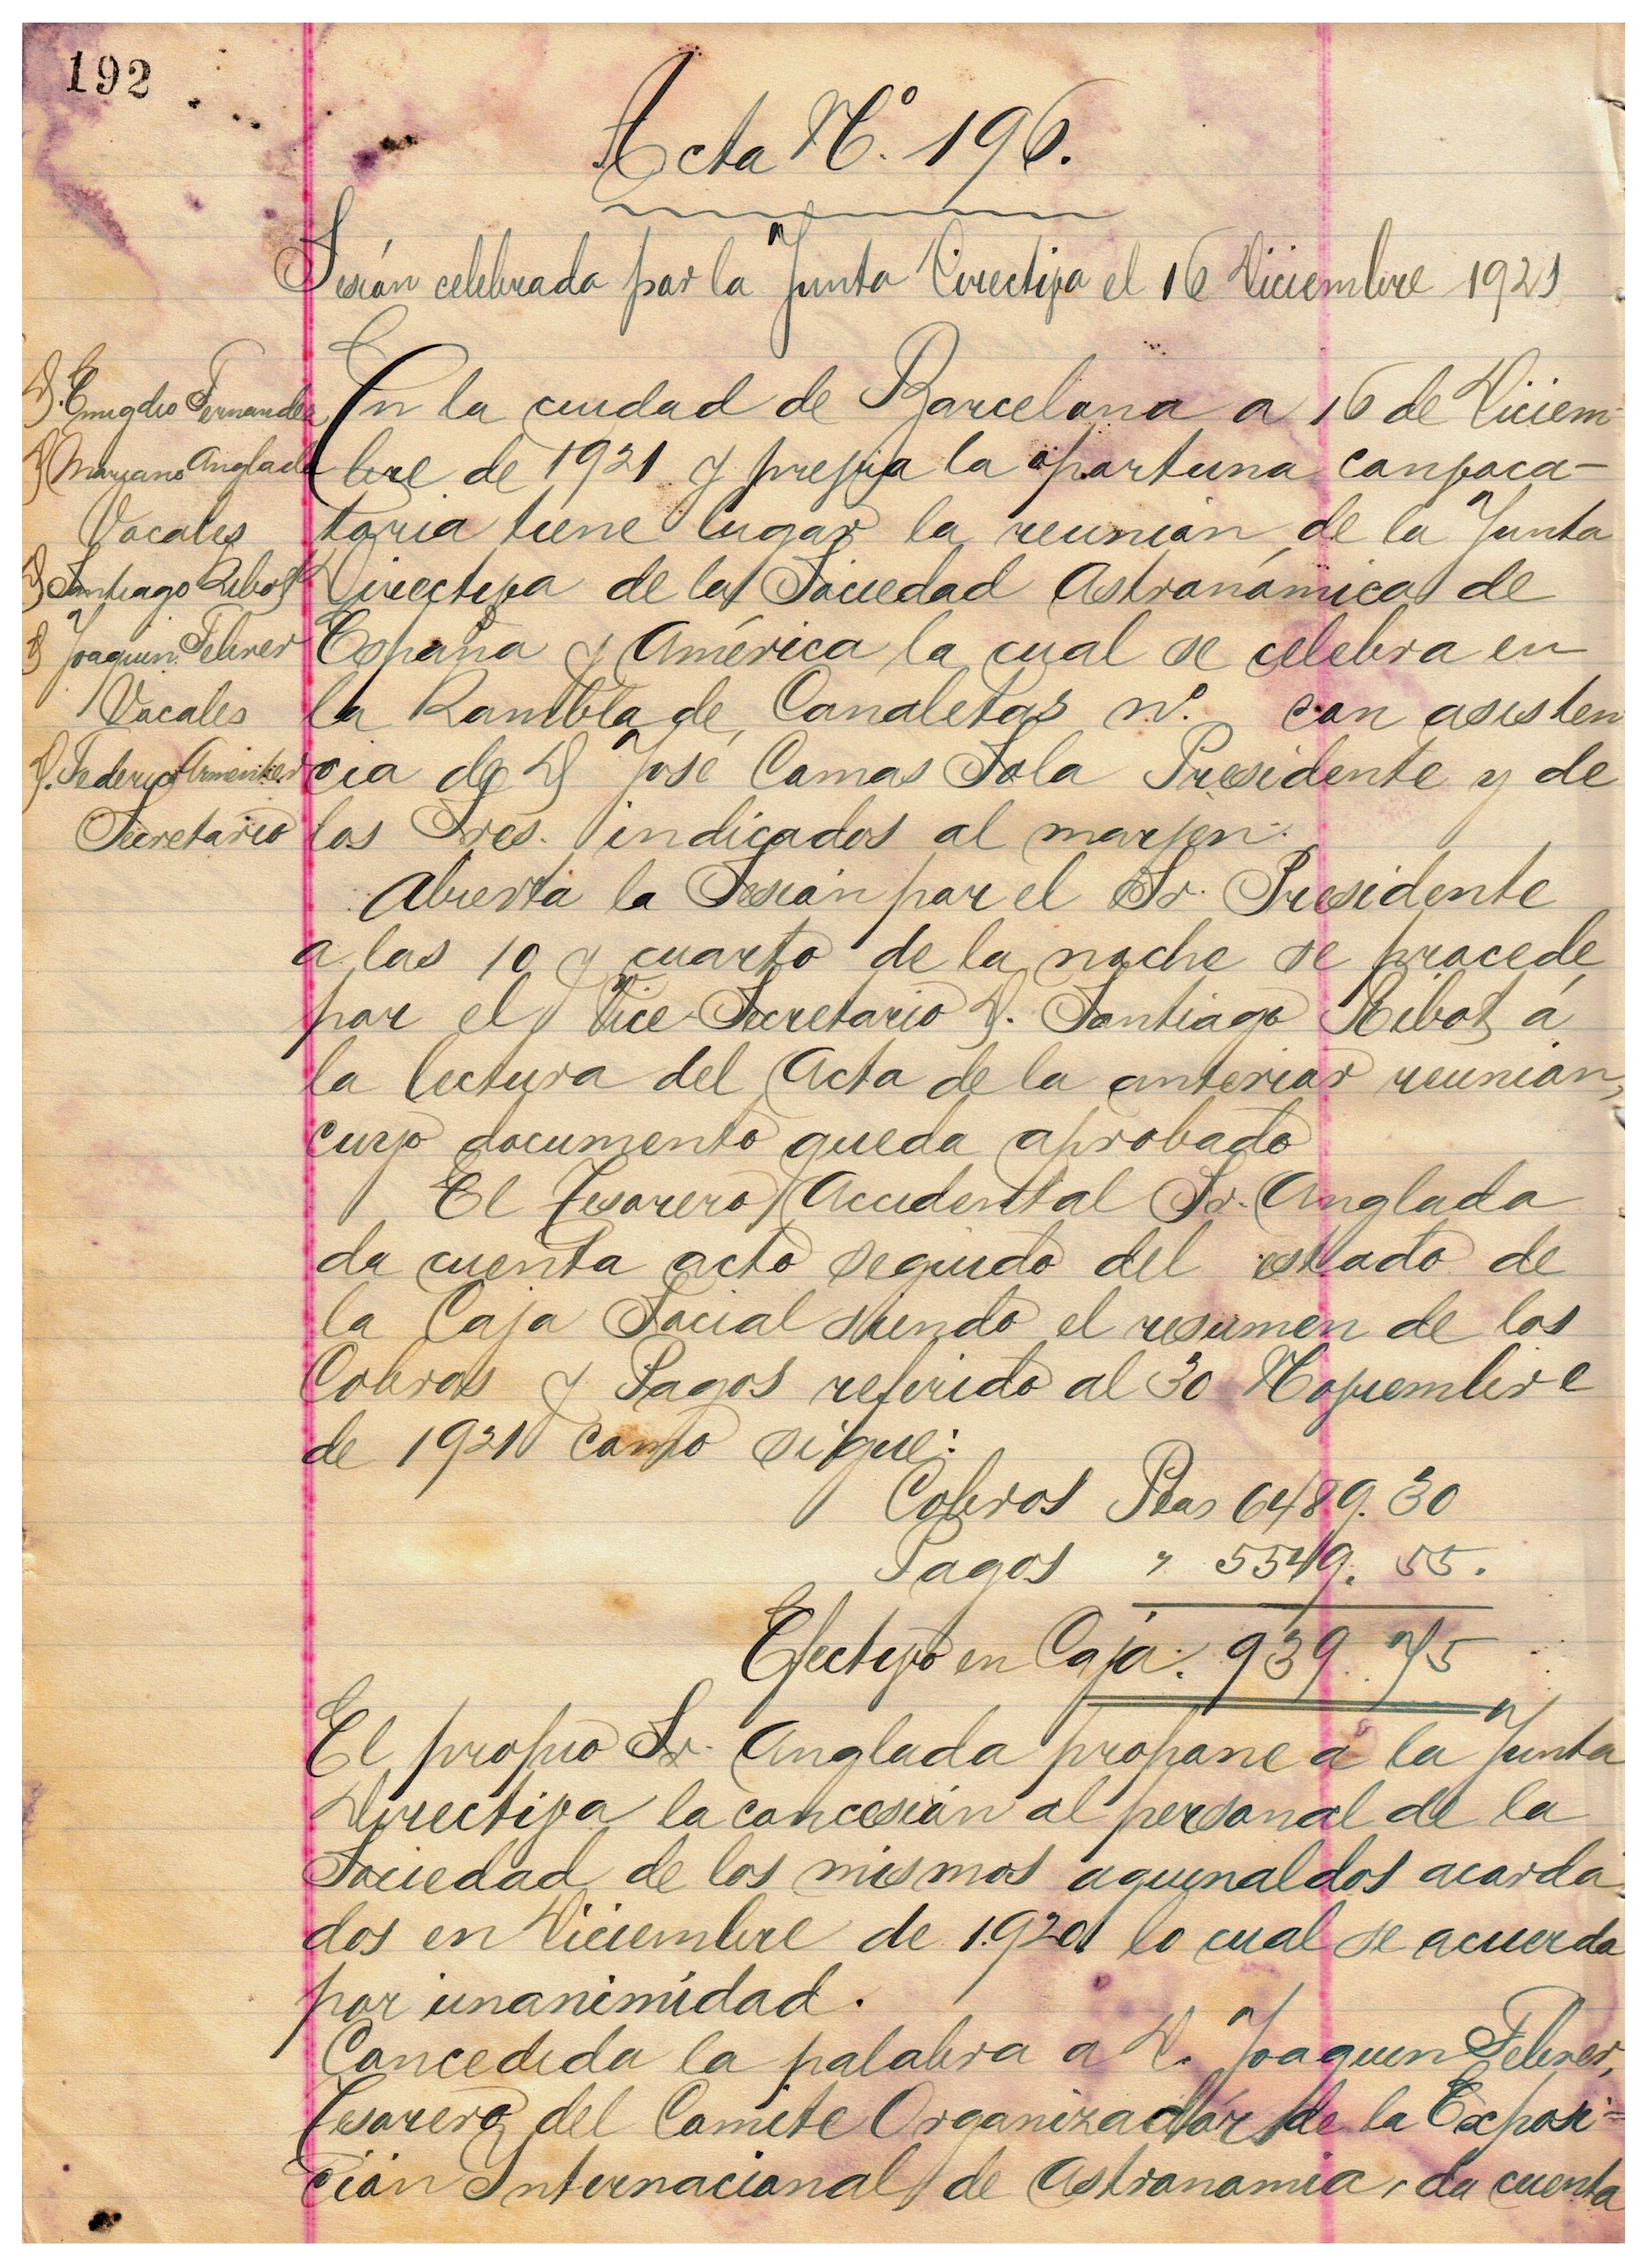 192
Acta Nº. 196.
Sesión celebrada por la Junta Directiva el 16 Diciembre 1921
D. Emigdio Fernandez
D Mariano Anglada
Vocales
D Santiago Ribot
D Joaquin Febrer
Vocales
D. Federico Armenter
Secretario
En la ciudad de Barcelona a 16 de Diciem-
bre de 1921 y previa la oportuna convoca-
toria tiene lugar la reunión de la Junta
Directiva de la Sociedad Astronómica de
España y América la cual se celebra en
la Rambla de Canaletas nº. con asisten
cia de D José Comas Sola Presidente y de
los Sres. indicados al marjen.
Abierta la Sesión por el Sr. Presidente
a las 10 y cuarto de la noche se procede
por el Vice-Secretario D. Santiago Ribot á
la lectura del Acta de la anterior reunión,
cuyo documento queda aprobado
El Tesorero Accidental Sr. Anglada
da cuenta acto seguido del estado de
la Caja Social siendo el resumen de los
Cobros y Pagos referido al 30 Noviembre
de 1921 como sigue:
Cobros Ptas 6489.30
Pagos " 5549.55.
Efectivo en Caja. 939.75
El propio Sr. Anglada propone á la Junta
Directiva la concesión al personal de la
Sociedad de los mismos aguinaldos acorda
dos en Diciembre de 1920 lo cual se acuerda
por unanimidad.
Concedida la palabra a D. Joaquin Febrer,
Tesorero del Comite Organizador de la Exposi=
ción Internacional de Astronomia, da cuenta